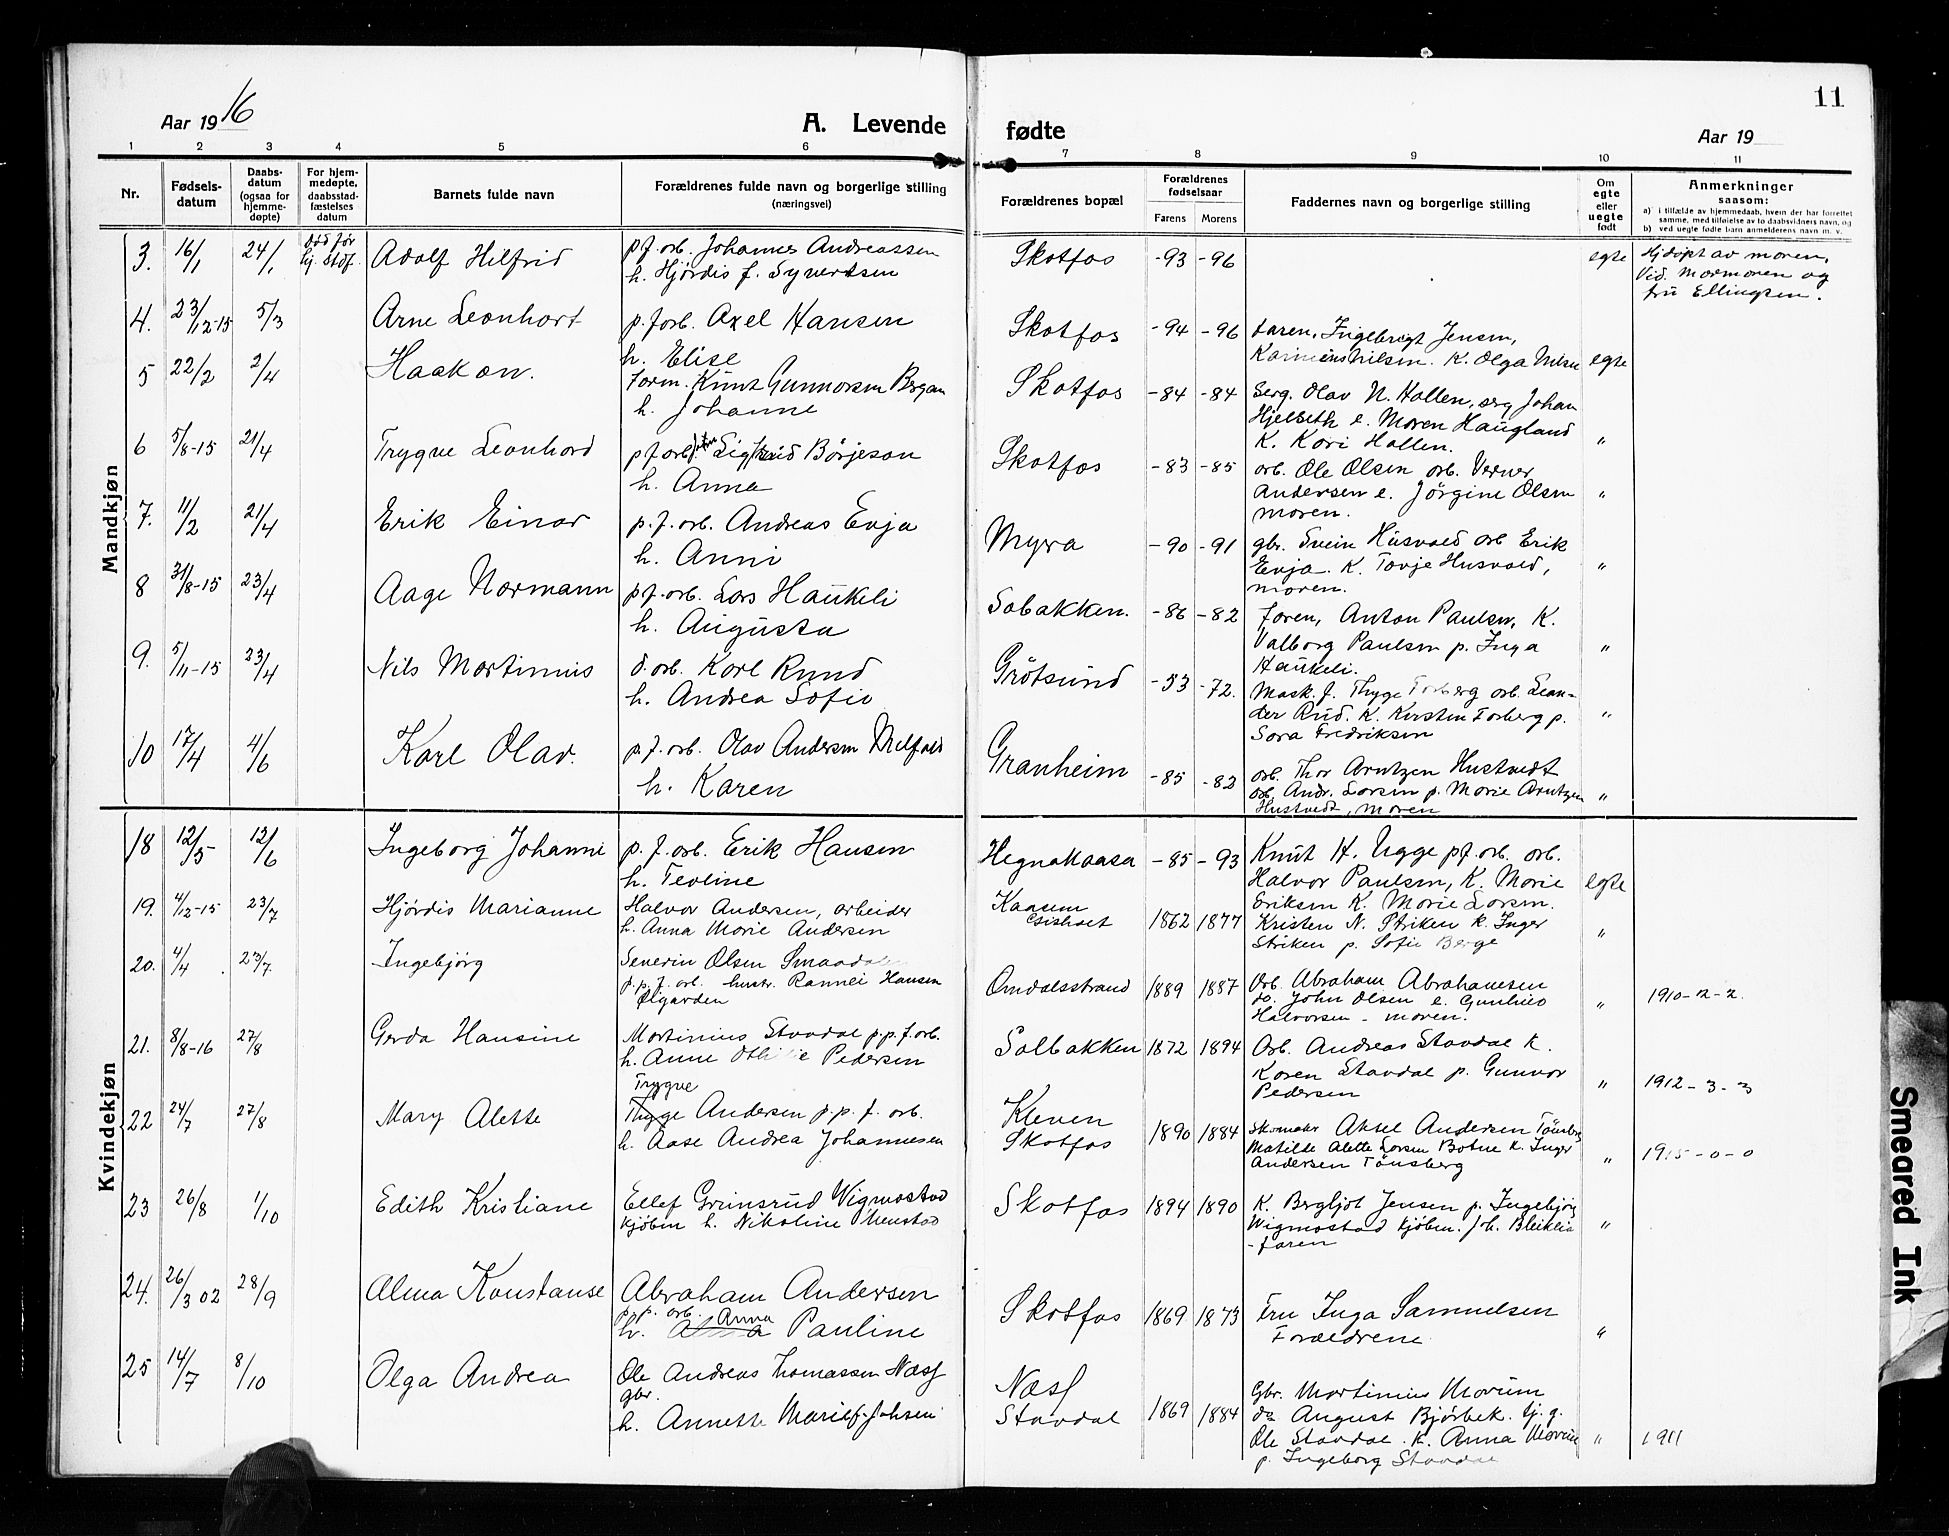 11
Aar 1916
A. Levende fødte
Aar 19
1 2 3 4 5 6 7 8 9 10 11
Nr.
Fødsels-datum
Daabs-datum (ogsaa for hjemme-døpte)
For hjem-medøpte, daabsstad-fæstelses datum
Barnets fulde navn
Forældrenes fulde navn og borgerlige stilling (næringsvei)
Forældrenes bopæl
Forældrenes fødselsaar
Farens
Morens
Faddernes navn og borgerlige stilling
Om egte eller uegte født
Anmerkninger saasom:
a) i tilfælde av hjemmedaab, hvem der har forrettet samme, med tilføielse av to daabsvidners navn, og
b) ved uegte fødte barn anmelderens navn m. v.
Mandkjøn
3. 16/1 24/1 død før hj. stdf. Adolf Hilfrid
p.f. orb. Johannes Andreassen
h. Hjördis f. Syvertsen
Skotfos -93 -96 egte
Hjdöpt av moren,
Vid. Mormoren og
fru Ellingsen.
4. 23/12-15 5/3 Arne Leonhart
p. f orb. Axel Hansen
h. Elise
Skotfos -94 -96
Faren, Ingebrigt Jensen,
K. Olga Nilsen egte
5 22/2 2/4 Haakon.
Form. Knut Gunnorsen Bergan
h. Johanne
Skotfos -84 -84
Serg. Olav N. Hollen, serg Johan
Hjelseth e. Moren Haugland
K. Kari Hollen. "
6 5/8-15 21/4 Trygve Leonhord
p f orb. Sigfrid Börjeson
h. Anna
Skotfos -83 -85
orb. Ole Olsen orb. Verner
Andersen e. Jörgine Olsen
moren. "
7. 11/2 21/4 Erik Einar
p. f. orb. Andreas Evja
h. Anni
Myra -90 -91
gbr. Svein Husvald orb Erik
Evja. K. Tovje Husvald,
moren. "
8 31/8-15 23/4 Aage Normann
p f. orb. Lars Haukeli
h. Augusta
Solbakken. -86 -82
Faren, Anton Paulsen, K.
Valborg Paulsen p. Inga
Haukeli. "
9. 5/11-15 23/4 Nils Martinius
d. orb. Karl Ruud
h. Andrea Sofie
Grötsund -53 -72.
Mask. f. Thyge Forberg orb. Lean-
der Rud. K. Kirsten Forberg p.
Sara Fredriksen "
10 17/4 4/6 Karl Olav.
p. f. orb. Olav Andersen Melfald
h. Karen
Granheim -85 -82
orb. Thor Arntzen Hustvedt
orb. Andr. Larsen p. Marie Arntzen
Hustvedt, moren "
Kvindekjøn
18 12/5 12/6 Ingeborg Johanne
p. f. orb. Erik Hansen
h. Teoline
Hegnakaasa -85 -93
Knut H. Ugge p f. orb. orb.
Halvor Paulsen, K. Marie
Eriksen K. Marie Larsen. egte
19. 4/12-15 23/7 Hjördis Marianne
Halvor Andersen, arbeider
h. Anna Marie Andersen
Kaasen
1862 1877
Kristen N. Striken K. Inger
Striken p. Sofie Berge "
20. 4/4 23/7 Ingebjörg
Severin Olsen
p. p. f. orb. hustr. Rannei Hansen
Öigarden
Omdalsstrand 1889 1887
Orb. Abraham Abrahamsen
do. John Olsen e. Gunhild
Halvorsen - moren. " 1910-2-2.
21. 8/8-16 27/8 Gerda Hansine
Martinius Stavdal p.p.f. orb.
h. Anne Othilie Pedersen
Solbakken 1872 1894
Orb. Andreas Stavdal K.
Karen Stavdal p. Gunvor
Pedersen " 1912-3-3
22 24/7 27/8 Mary Alette
Trygve
Thyge Andersen p.p. f. orb.
h. Aase Andrea Johannesen
Kleven
Skotfos 1890 1884
Skomaker Aksel Andersen Tönsberg
Matilde Alette Larsen Botne K. Inger
Andersen Tönsberg " 1915-0-0
23 26/8 1/10 Edith Kristiane
Ellef Grinsrud Wigmostad
kjöbm h. Nikoline Menstad
Skotfos 1894 1890
K. Bergljot Jensen p. Ingebjörg
Wigmostad kjöbm. Joh. Bleiklia
- faren "
24. 26/3 02 28/9 Alma Konstanse
Abraham Andersen
p. p. orb. Anna
h. Pauline
Skotfos 1869 1873
Fru Inga Samuelsen
Forældrene "
25 14/7 8/10 Olga Andrea
Ole Andreas Thomassen Næss
gbr.
h. Annette Marie f. Johsen
Næss
Stavdal 1869 1884
Gbr. Martinius Morum
do August Bjørbek. Uj. g.
Ole Stavdal K. Anna Morum
p. Ingeborg Stavdal " 1911
Smeared Ink